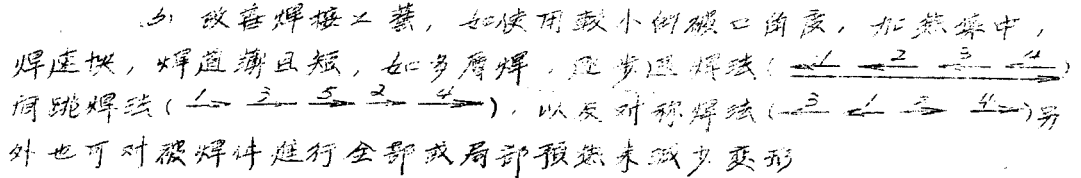 b) 改善焊接工艺，如使用较小的破口角度，加热集中，
焊速快，焊道薄且短，如多层焊，逐步退焊法（←1 ←2 ←3 ←4）
间跳焊法（1→ 3→ 5→ 2→ 4→），以及对称焊法（←3 ←1 2→ 4→）另
外也可对被焊件进行全部或局部预热来减少变形